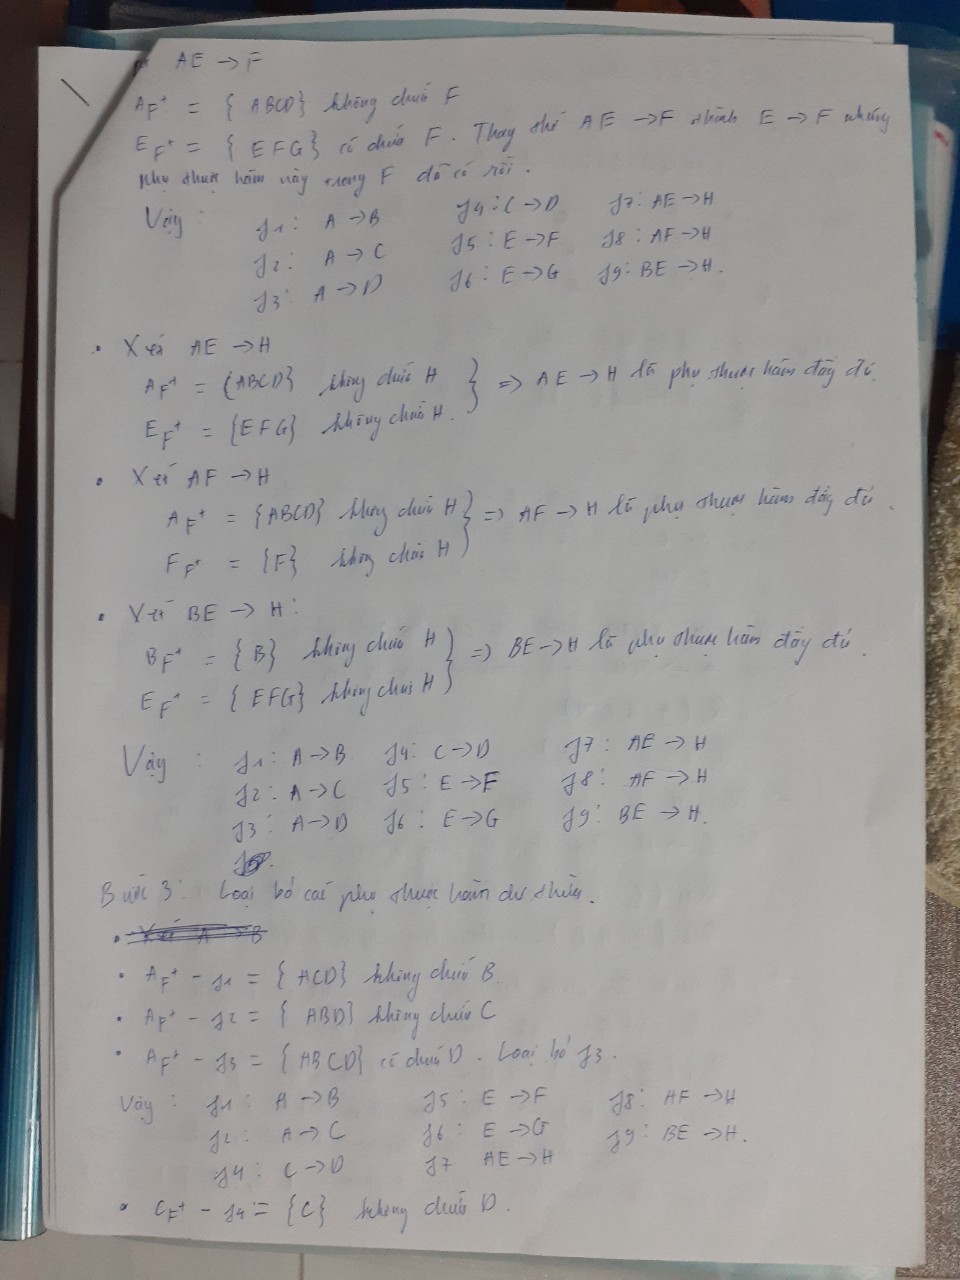 AE → F
A_F⁺ = { ABCD} không chứa F
E_F⁺ = { EFG} có chứa F. Thay thế AE → F thành E → F nhưng
phụ thuộc hàm này trong F đã có rồi.
Vậy : f1: A → B f4: C → D f7: AE → H
f2: A → C f5: E → F f8: AF → H
f3: A → D f6: E → G f9: BE → H.
• Xét AE → H
A_F⁺ = {ABCD} không chứa H
E_F⁺ = {EFG} không chứa H. } => AE → H là phụ thuộc hàm đầy đủ.
• Xét AF → H
A_F⁺ = {ABCD} không chứa H
F_F⁺ = {F} không chứa H } => AF → H là phụ thuộc hàm đầy đủ.
• Xét BE → H :
B_F⁺ = { B} không chứa H
E_F⁺ = { EFG} không chứa H } => BE → H là phụ thuộc hàm đầy đủ.
Vậy : f1: A → B f4: C → D f7: AE → H
f2: A → C f5: E → F f8: AF → H
f3: A → D f6: E → G f9: BE → H.
Bước 3: Loại bỏ các phụ thuộc hàm dư thừa.
• Xét A → B
• A_F⁺ - f1 = { ACD} không chứa B.
• A_F⁺ - f2 = { ABD} không chứa C
• A_F⁺ - f3 = { ABCD} có chứa D. Loại bỏ f3.
Vậy : f1: A → B f5: E → F f8: AF → H
f2: A → C f6: E → G f9: BE → H.
f4: C → D f7 AE → H
• C_F⁺ - f4 = {C} không chứa D.